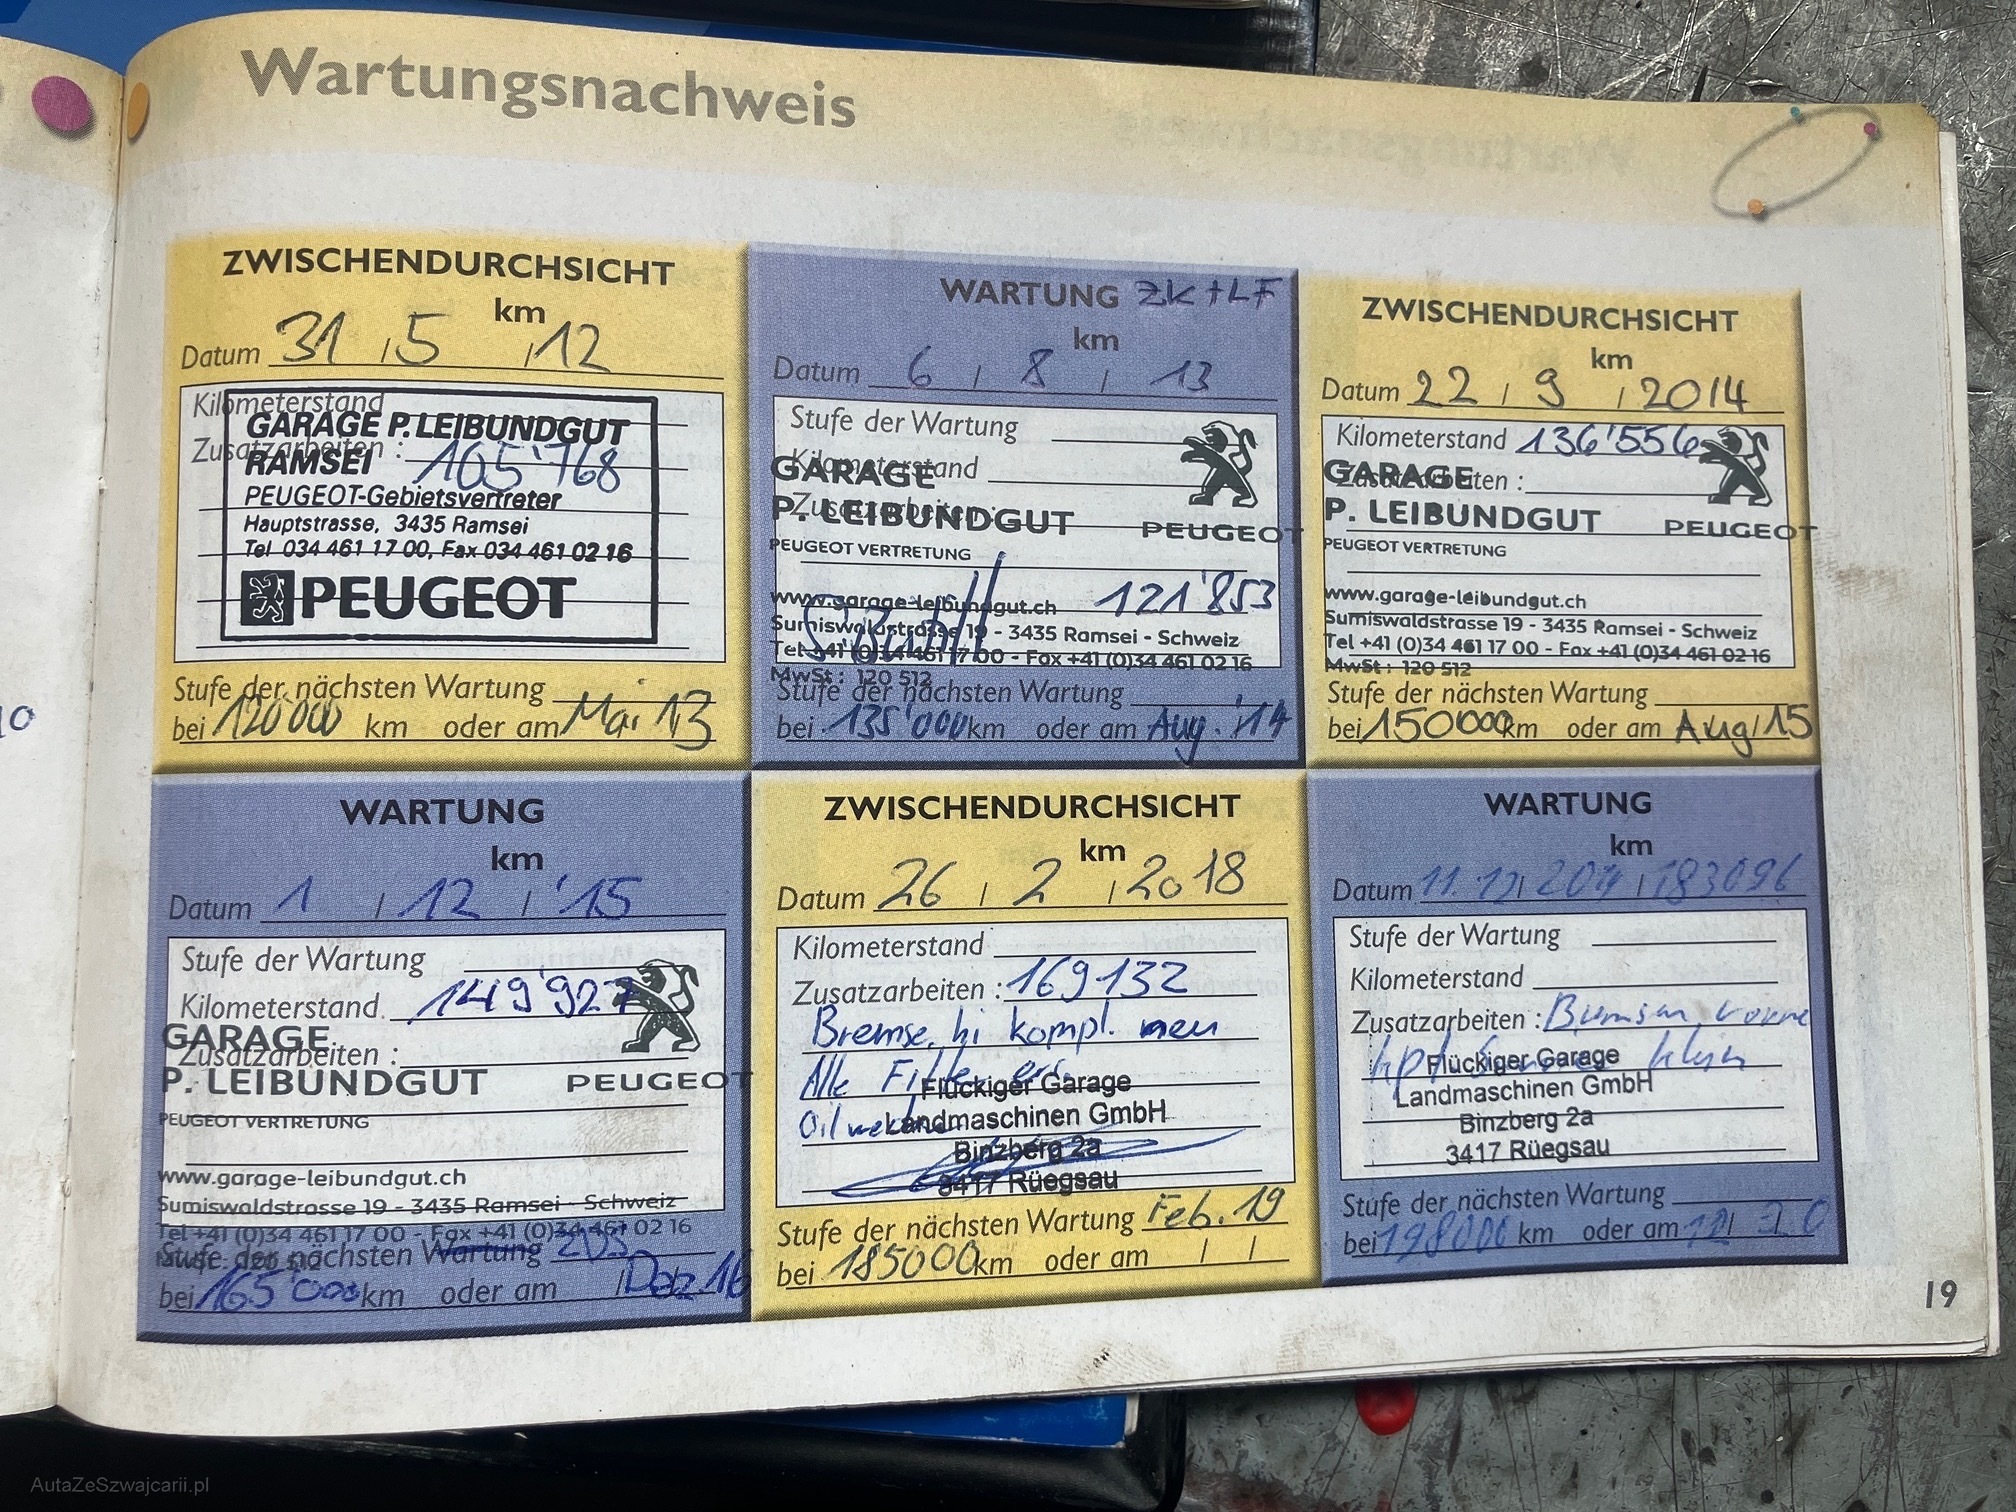 Wartungsnachweis
ZWISCHENDURCHSICHT
km
Datum 31 / 5 / 12
Kilometerstand
Zusatzarbeiten : 105'768
GARAGE P. LEIBUNDGUT
RAMSEI
PEUGEOT-Gebietsvertreter
Hauptstrasse, 3435 Ramsei
Tel 034 461 17 00, Fax 034 461 02 16
PEUGEOT
Stufe der nächsten Wartung
bei 120'000 km oder am Mai 13
WARTUNG ZK+LF
km
Datum 6 / 8 / 13
Stufe der Wartung
Kilometerstand
Zusatzarbeiten :
GARAGE
P. LEIBUNDGUT PEUGEOT
PEUGEOT VERTRETUNG
121'853
www.garage-leibundgut.ch
Sumiswaldstrasse 19 - 3435 Ramsei - Schweiz
Tel +41 (0)34 461 17 00 - Fax +41 (0)34 461 02 16
MwSt : 120 512
Stufe der nächsten Wartung
bei 135'000 km oder am Aug. '14
ZWISCHENDURCHSICHT
km
Datum 22 / 9 / 2014
Kilometerstand 136'556
Zusatzarbeiten :
GARAGE
P. LEIBUNDGUT PEUGEOT
PEUGEOT VERTRETUNG
www.garage-leibundgut.ch
Sumiswaldstrasse 19 - 3435 Ramsei - Schweiz
Tel +41 (0)34 461 17 00 - Fax +41 (0)34 461 02 16
MwSt : 120 512
Stufe der nächsten Wartung
bei 150'000 km oder am Aug/15
WARTUNG
km
Datum 1 / 12 / '15
Stufe der Wartung
Kilometerstand 149'927
Zusatzarbeiten :
GARAGE
P. LEIBUNDGUT PEUGEOT
PEUGEOT VERTRETUNG
www.garage-leibundgut.ch
Sumiswaldstrasse 19 - 3435 Ramsei - Schweiz
Tel +41 (0)34 461 17 00 - Fax +41 (0)34 461 02 16
MwSt : 120 512
Stufe der nächsten Wartung ZDS
bei 165'000 km oder am / Dez. 16
ZWISCHENDURCHSICHT
km
Datum 26 / 2 / 2018
Kilometerstand
Zusatzarbeiten : 169132
Bremse hi kompl. neu
Alle Filter
Oil
Flückiger Garage
Landmaschinen GmbH
Binzberg 2a
3417 Rüegsau
Stufe der nächsten Wartung Feb. 19
bei 185000 km oder am / /
WARTUNG
km
Datum 11. 12 / / 183096
Stufe der Wartung
Kilometerstand
Zusatzarbeiten : vorne
Flückiger Garage
Landmaschinen GmbH
Binzberg 2a
3417 Rüegsau
Stufe der nächsten Wartung
bei 198000 km oder am 12 / 20
19
AutaZeSzwajcarii.pl